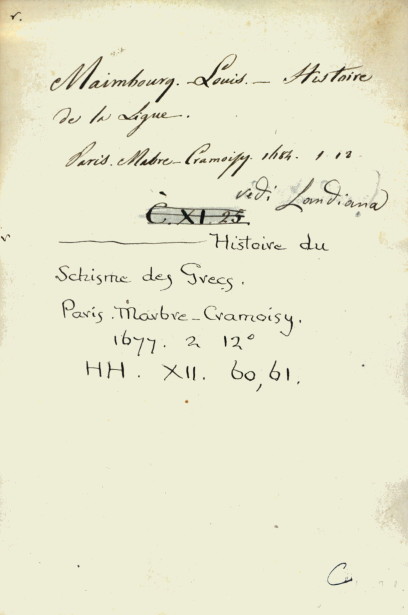 v.
Maimbourg. Louis. — Histoire
de la Ligue.
Paris. Mabre-Cramoisy. 1684. 1 12
vedi Landiana
C. XI. 25
Histoire du
Schisme des Grecs.
Paris. Marbre-Cramoisy.
1677. 2 12°
HH. XII. 60,61.
C